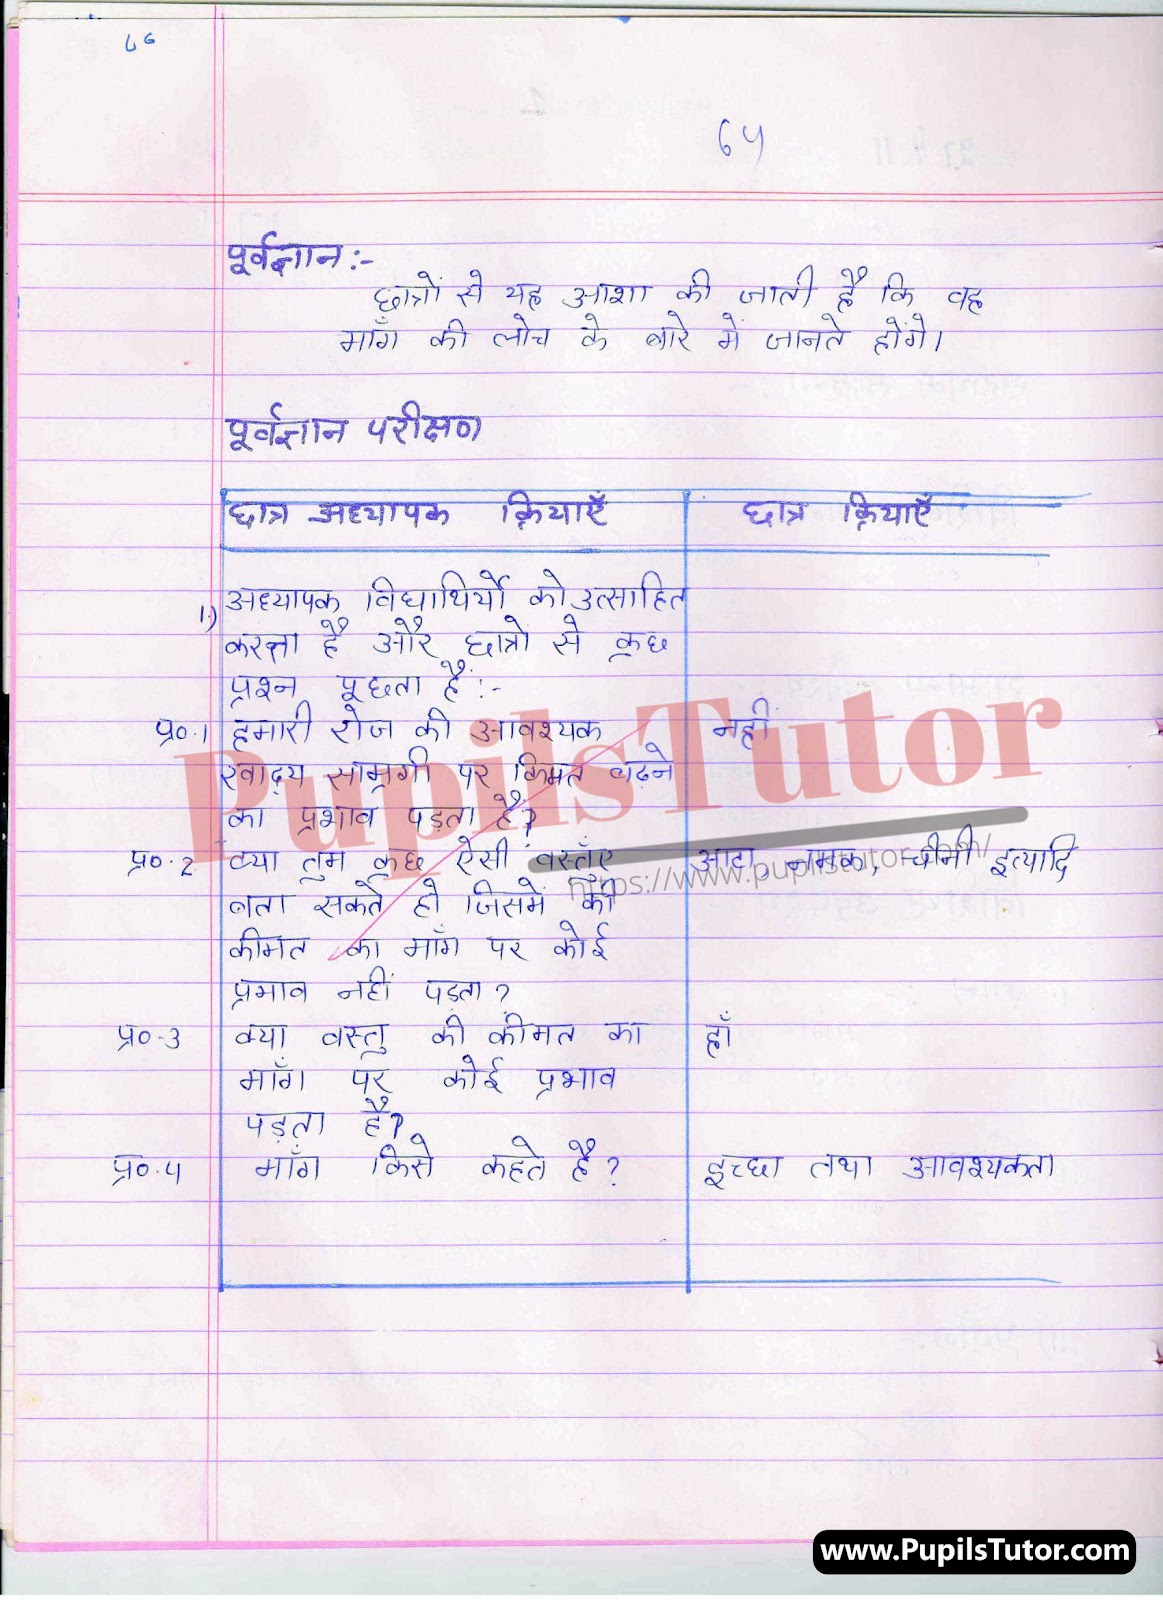 64
पूर्वज्ञान :-
छात्रों से यह आशा की जाती है कि वह
माँग की लोच के बारे में जानते होंगे।
पूर्वज्ञान परीक्षण
छात्र अध्यापक क्रियाएँ छात्र क्रियाएँ
1.) अध्यापक विद्यार्थियों को उत्साहित
करता है और छात्रो से कुछ
प्रश्न पूछता है :-
प्र०.1 हमारी रोज की आवश्यक नहीं
खाद्य सामग्री पर किमत बढ़ने
का प्रभाव पड़ता है?
प्र०.2 क्या तुम कुछ ऐसी वस्तुँए आटा, नमक, चीनी इत्यादि
बता सकते हो जिसमें की
कीमत का माँग पर कोई
प्रभाव नहीं पड़ता?
प्र०-3 क्या वस्तु की कीमत का हाँ
माँग पर कोई प्रभाव
पड़ता है?
प्र०.4 माँग किसे कहते है? इच्छा तथा आवश्यकता
PupilsTutor
https://www.pupilstutor.com/
www.PupilsTutor.com